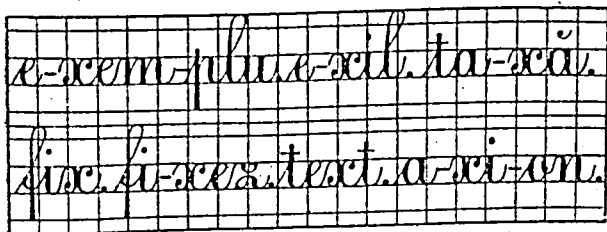 e-xem-plu. e-xil. ta-xă.
fix. fi-xez. text. a-xi-on.